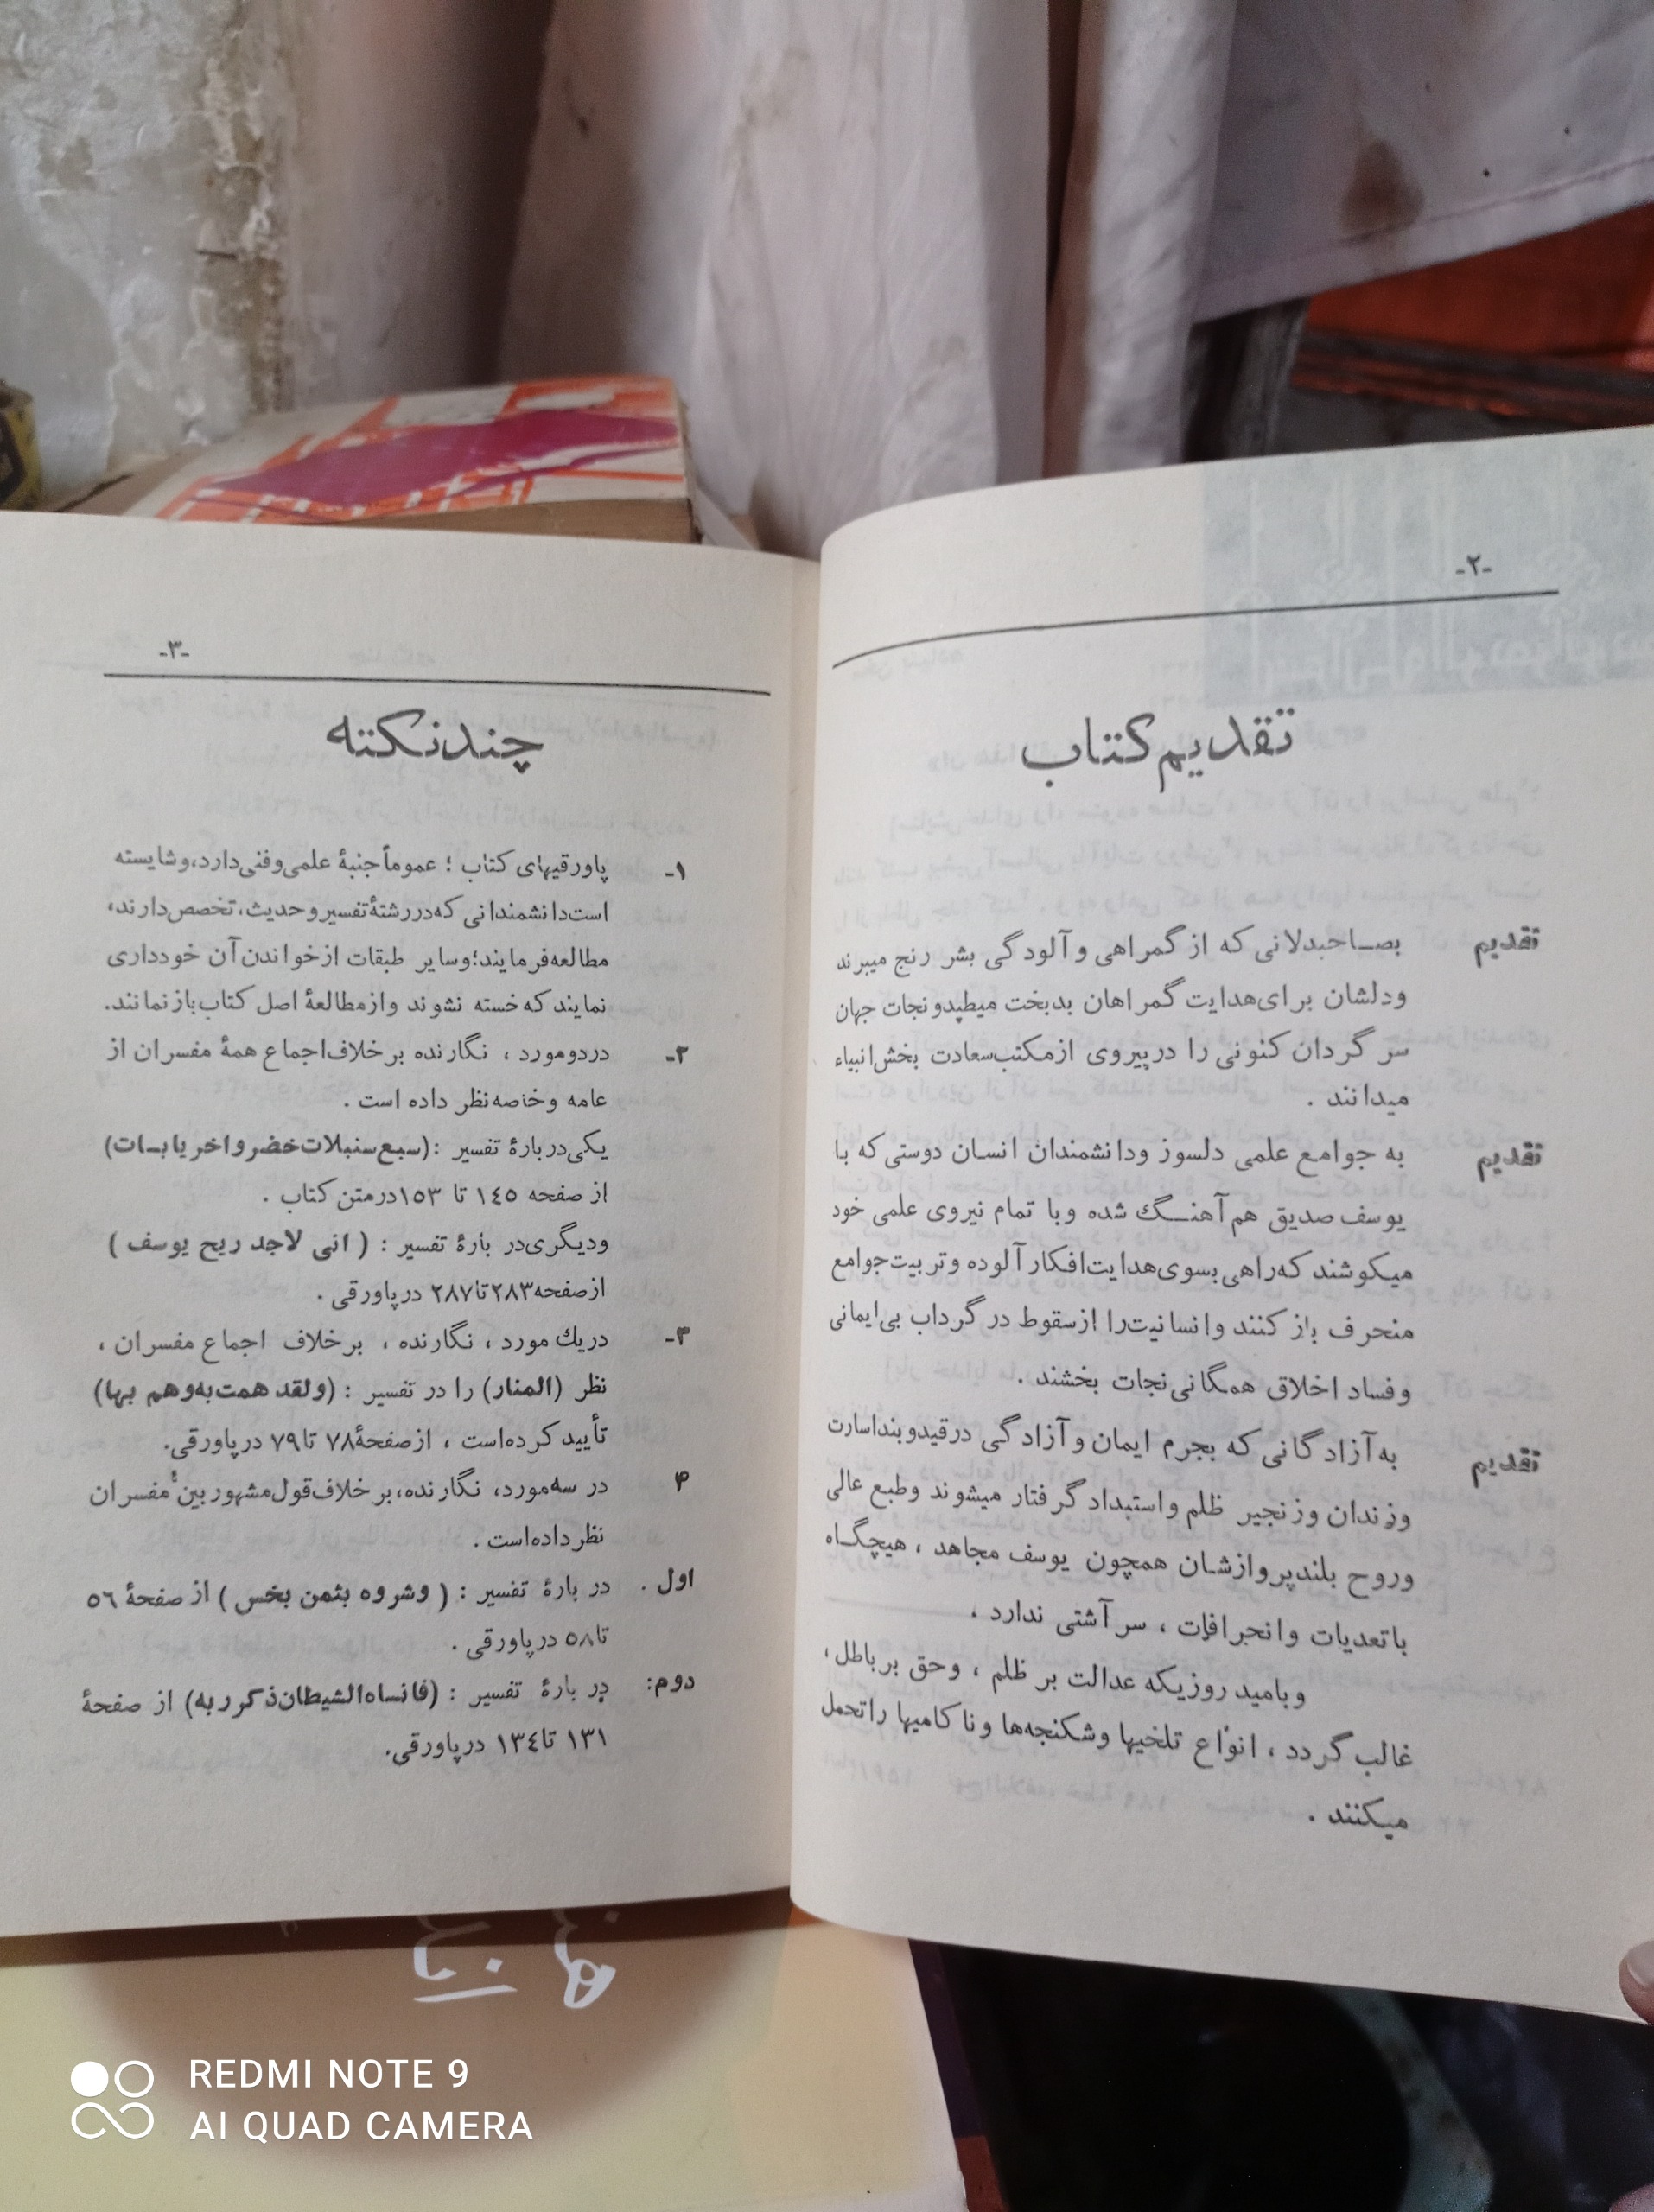 -۲-
تقدیم کتاب
تقدیم بصـاحبدلانی که از گمراهی و آلودگی بشر رنج میبرند
ودلشان برای هدایت گمراهان بدبخت میطپد و نجات جهان
سرگردان کنونی را در پیروی از مکتب سعادت بخش انبیاء
میدانند .
تقدیم به جوامع علمی دلسوز ودانشمندان انسان دوستی که با
یوسف صدیق هم آهنـگ شده وبا تمام نیروی علمی خود
میکوشند که راهی بسوی هدایت افکار آلوده و تربیت جوامع
منحرف باز کنند وانسانیت را از سقوط در گرداب بی ایمانی
وفساد اخلاق همگانی نجات بخشند .
تقدیم به آزادگانی که بجرم ایمان و آزادگی در قید و بند اسارت
وزندان وزنجیر ظلم واستبداد گرفتار میشوند وطبع عالی
وروح بلند پروازشان همچون یوسف مجاهد ، هیچگـاه
با تعدیات وانحرافات ، سر آشتی ندارد .
وبامید روزیکه عدالت بر ظلم ، وحق بر باطل ،
غالب گردد ، انواع تلخیها وشکنجه‌ها وناکامیها را تحمل
میکنند .
-۳-
چند نکته
۱- پاورقیهای کتاب ؛ عموماً جنبهٔ علمی و فنی دارد، و شایسته
است دانشمندانی که در رشتهٔ تفسیر و حدیث، تخصص دارند،
مطالعه فرمایند؛ وسایر طبقات از خواندن آن خودداری
نمایند که خسته نشوند و از مطالعهٔ اصل کتاب باز نمانند.
۲- در دو مورد ، نگارنده بر خلاف اجماع همهٔ مفسران از
عامه و خاصه نظر داده است .
یکی در بارهٔ تفسیر : (سبع سنبلات خضر و اخر یابسات)
از صفحه ١٤٥ تا ١٥٣ در متن کتاب .
ودیگری در بارهٔ تفسیر : ( انی لاجد ریح یوسف )
از صفحه ۲۸۳ تا ۲۸۷ در پاورقی .
۳- در یك مورد ، نگارنده ، بر خلاف اجماع مفسران ،
نظر (المنار) را در تفسیر : (ولقد همت به وهم بها)
تأیید کرده است ، از صفحهٔ ۷۸ تا ۷۹ در پاورقی.
۴ در سه مورد، نگارنده، بر خلاف قول مشهور بین مفسران
نظر داده است .
اول . در بارهٔ تفسیر : ( وشروه بثمن بخس ) از صفحهٔ ٥٦
تا ٥٨ در پاورقی .
دوم: در بارهٔ تفسیر : (فانساه الشیطان ذکر ربه) از صفحهٔ
۱۳۱ تا ١٣٤ در پاورقی.
REDMI NOTE 9
AI QUAD CAMERA